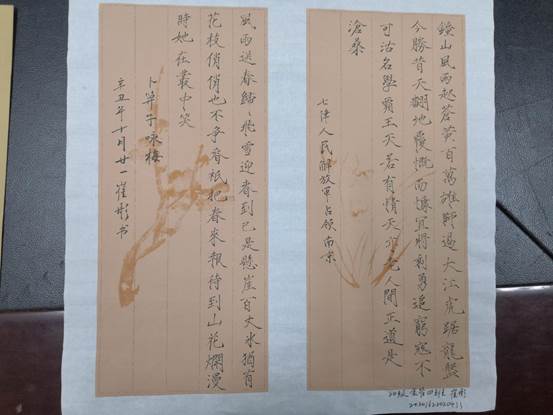 鐘山風雨起蒼黃百萬雄師過大江虎踞龍盤
今勝昔天翻地覆慨而慷宜將剩勇追窮寇不
可沽名學霸王天若有情天亦老人間正道是
滄桑
七律人民解放軍占領南京
風雨送春歸、飛雪迎春到已是懸崖百丈冰猶有
花枝俏俏也不爭春祇把春來報待到山花爛漫
時她在叢中笑
卜算子咏梅
辛丑年十月廿一崔彬书
20级